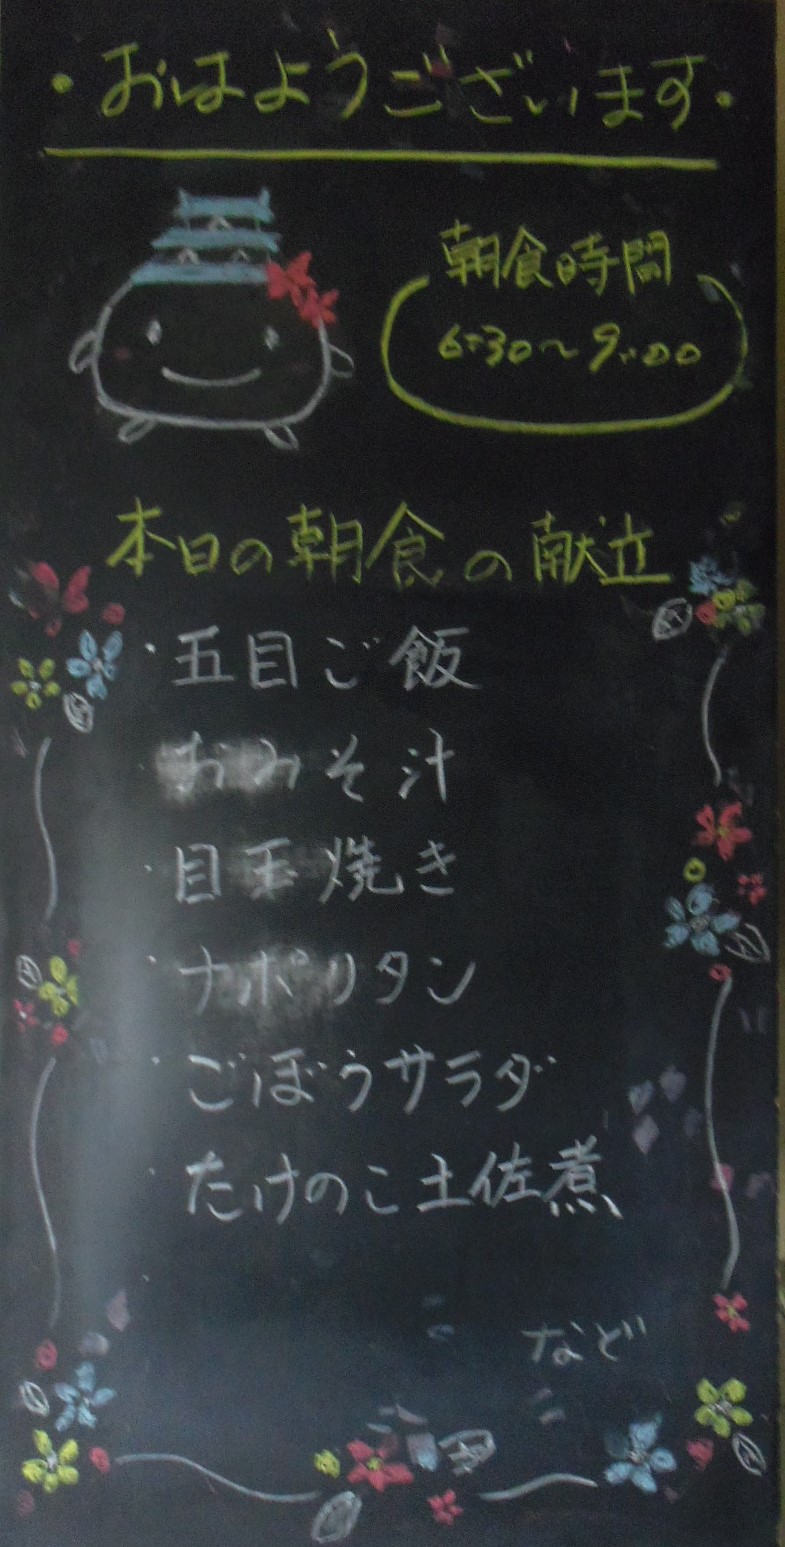 ・おはようございます・
朝食時間
6:30〜9:00
本日の朝食の献立
・五目ご飯
・おみそ汁
・目玉焼き
・ナポリタン
・ごぼうサラダ
・たけのこ土佐煮
など